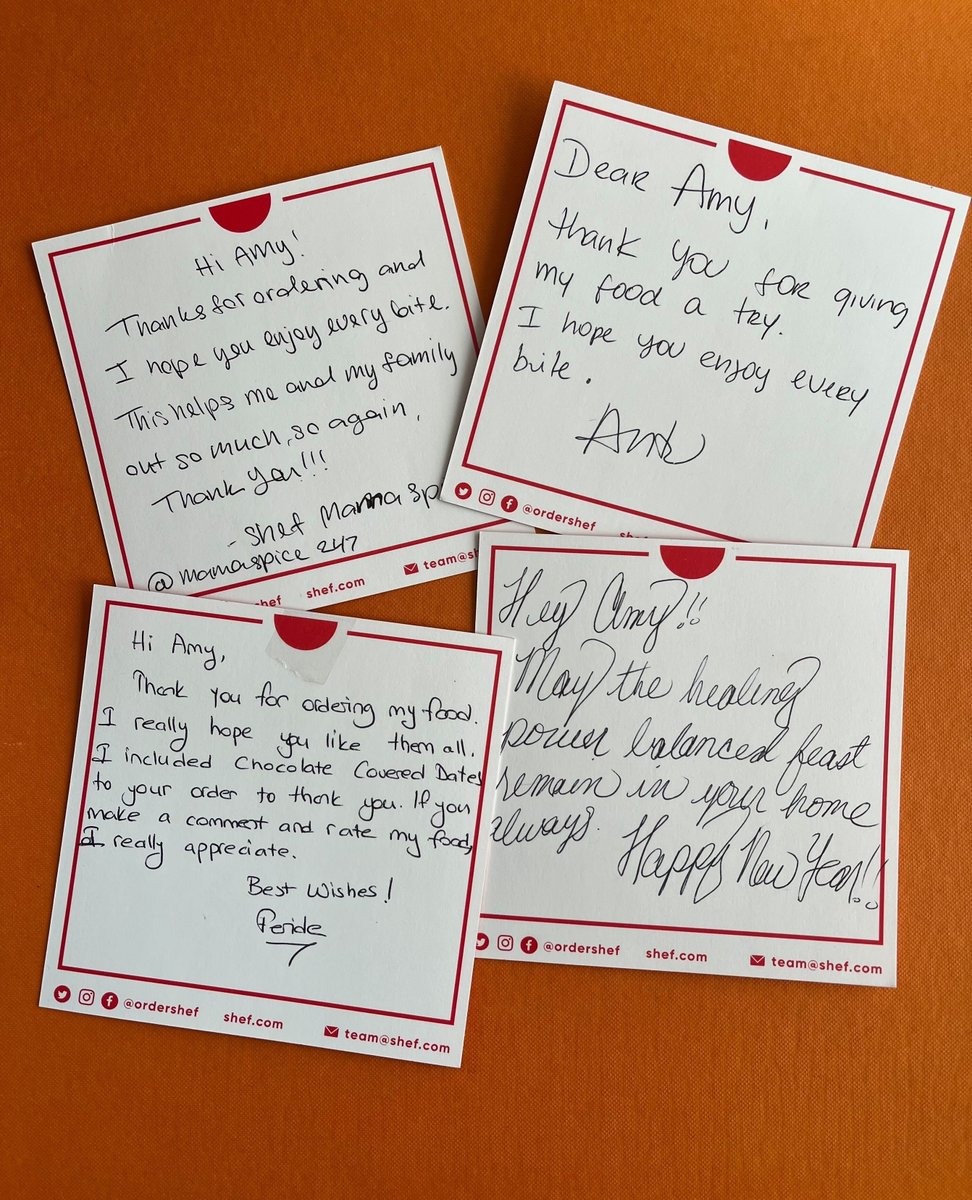 Hi Amy!
Thanks for ordering and
I hope you enjoy every bite.
This helps me and my family
out so much, so again,
Thank you!!!
- Shef Mama Sp
@mamaspice247
shef.com
team@sh
Dear Amy,
thank you for giving
my food a try.
I hope you enjoy every
bite.
@ordershef
Hi Amy,
Thank you for ordering my food.
I really hope you like them all.
I included Chocolate Covered Dates
to your order to thank you. If you
make a comment and rate my food,
I really appreciate.
Best Wishes!
Peride
@ordershef shef.com team@shef.com
Hey Amy!!
May the healing
power balanced feast
remain in your home
always.
Happy New Year!!
@ordershef shef.com team@shef.com